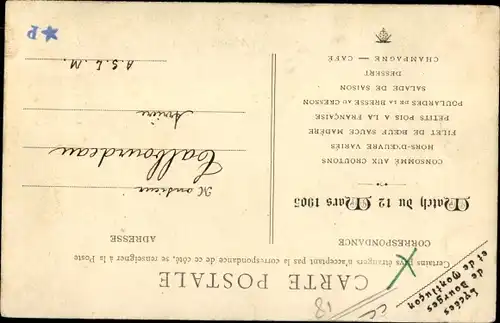 CARTE POSTALE
Certains pays étrangers n'acceptant pas la correspondance de ce côté, se renseigner à la Poste
CORRESPONDANCE
ADRESSE
Lycées
de Bourges
et de Montluçon
Match du 12 Mars 1905
CONSOMMÉ AUX CROUTONS
HORS-D'ŒUVRE VARIÉS
FILET DE BŒUF SAUCE MADÈRE
PETITS POIS A LA FRANÇAISE
POULARDES DE LA BRESSE AU CRESSON
SALADE DE SAISON
DESSERT
CHAMPAGNE — CAFÉ
Monsieur
Talbourdeau
Arrière
A. S. L. M.